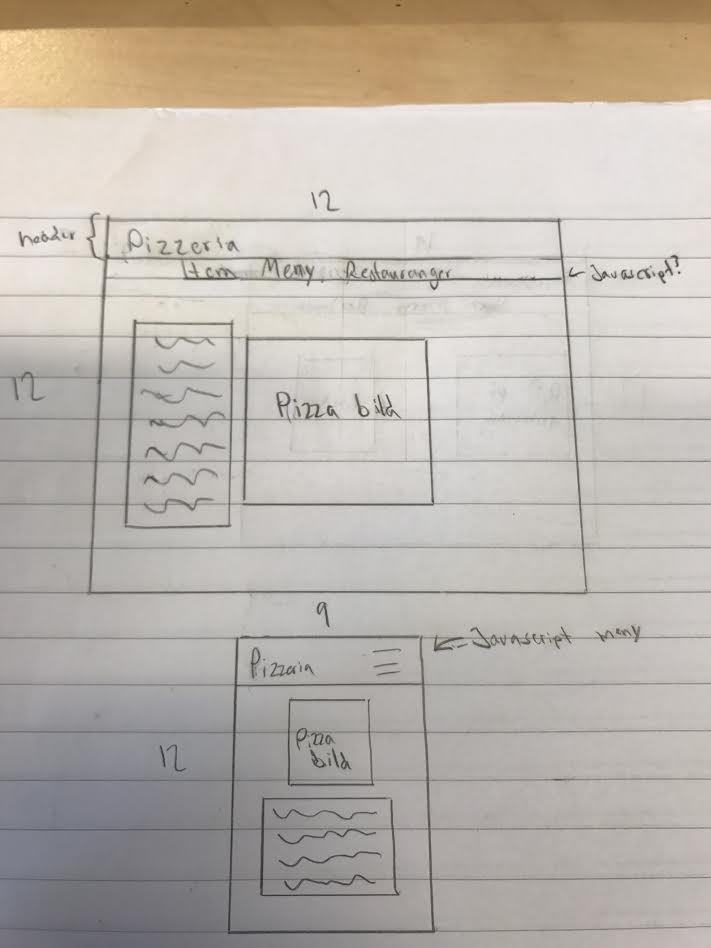 12
header
Pizzeria
Item Meny Restauranger
Javascript?
12
Pizza bild
9
Javascript meny
Pizzeria
12
Pizza
bild